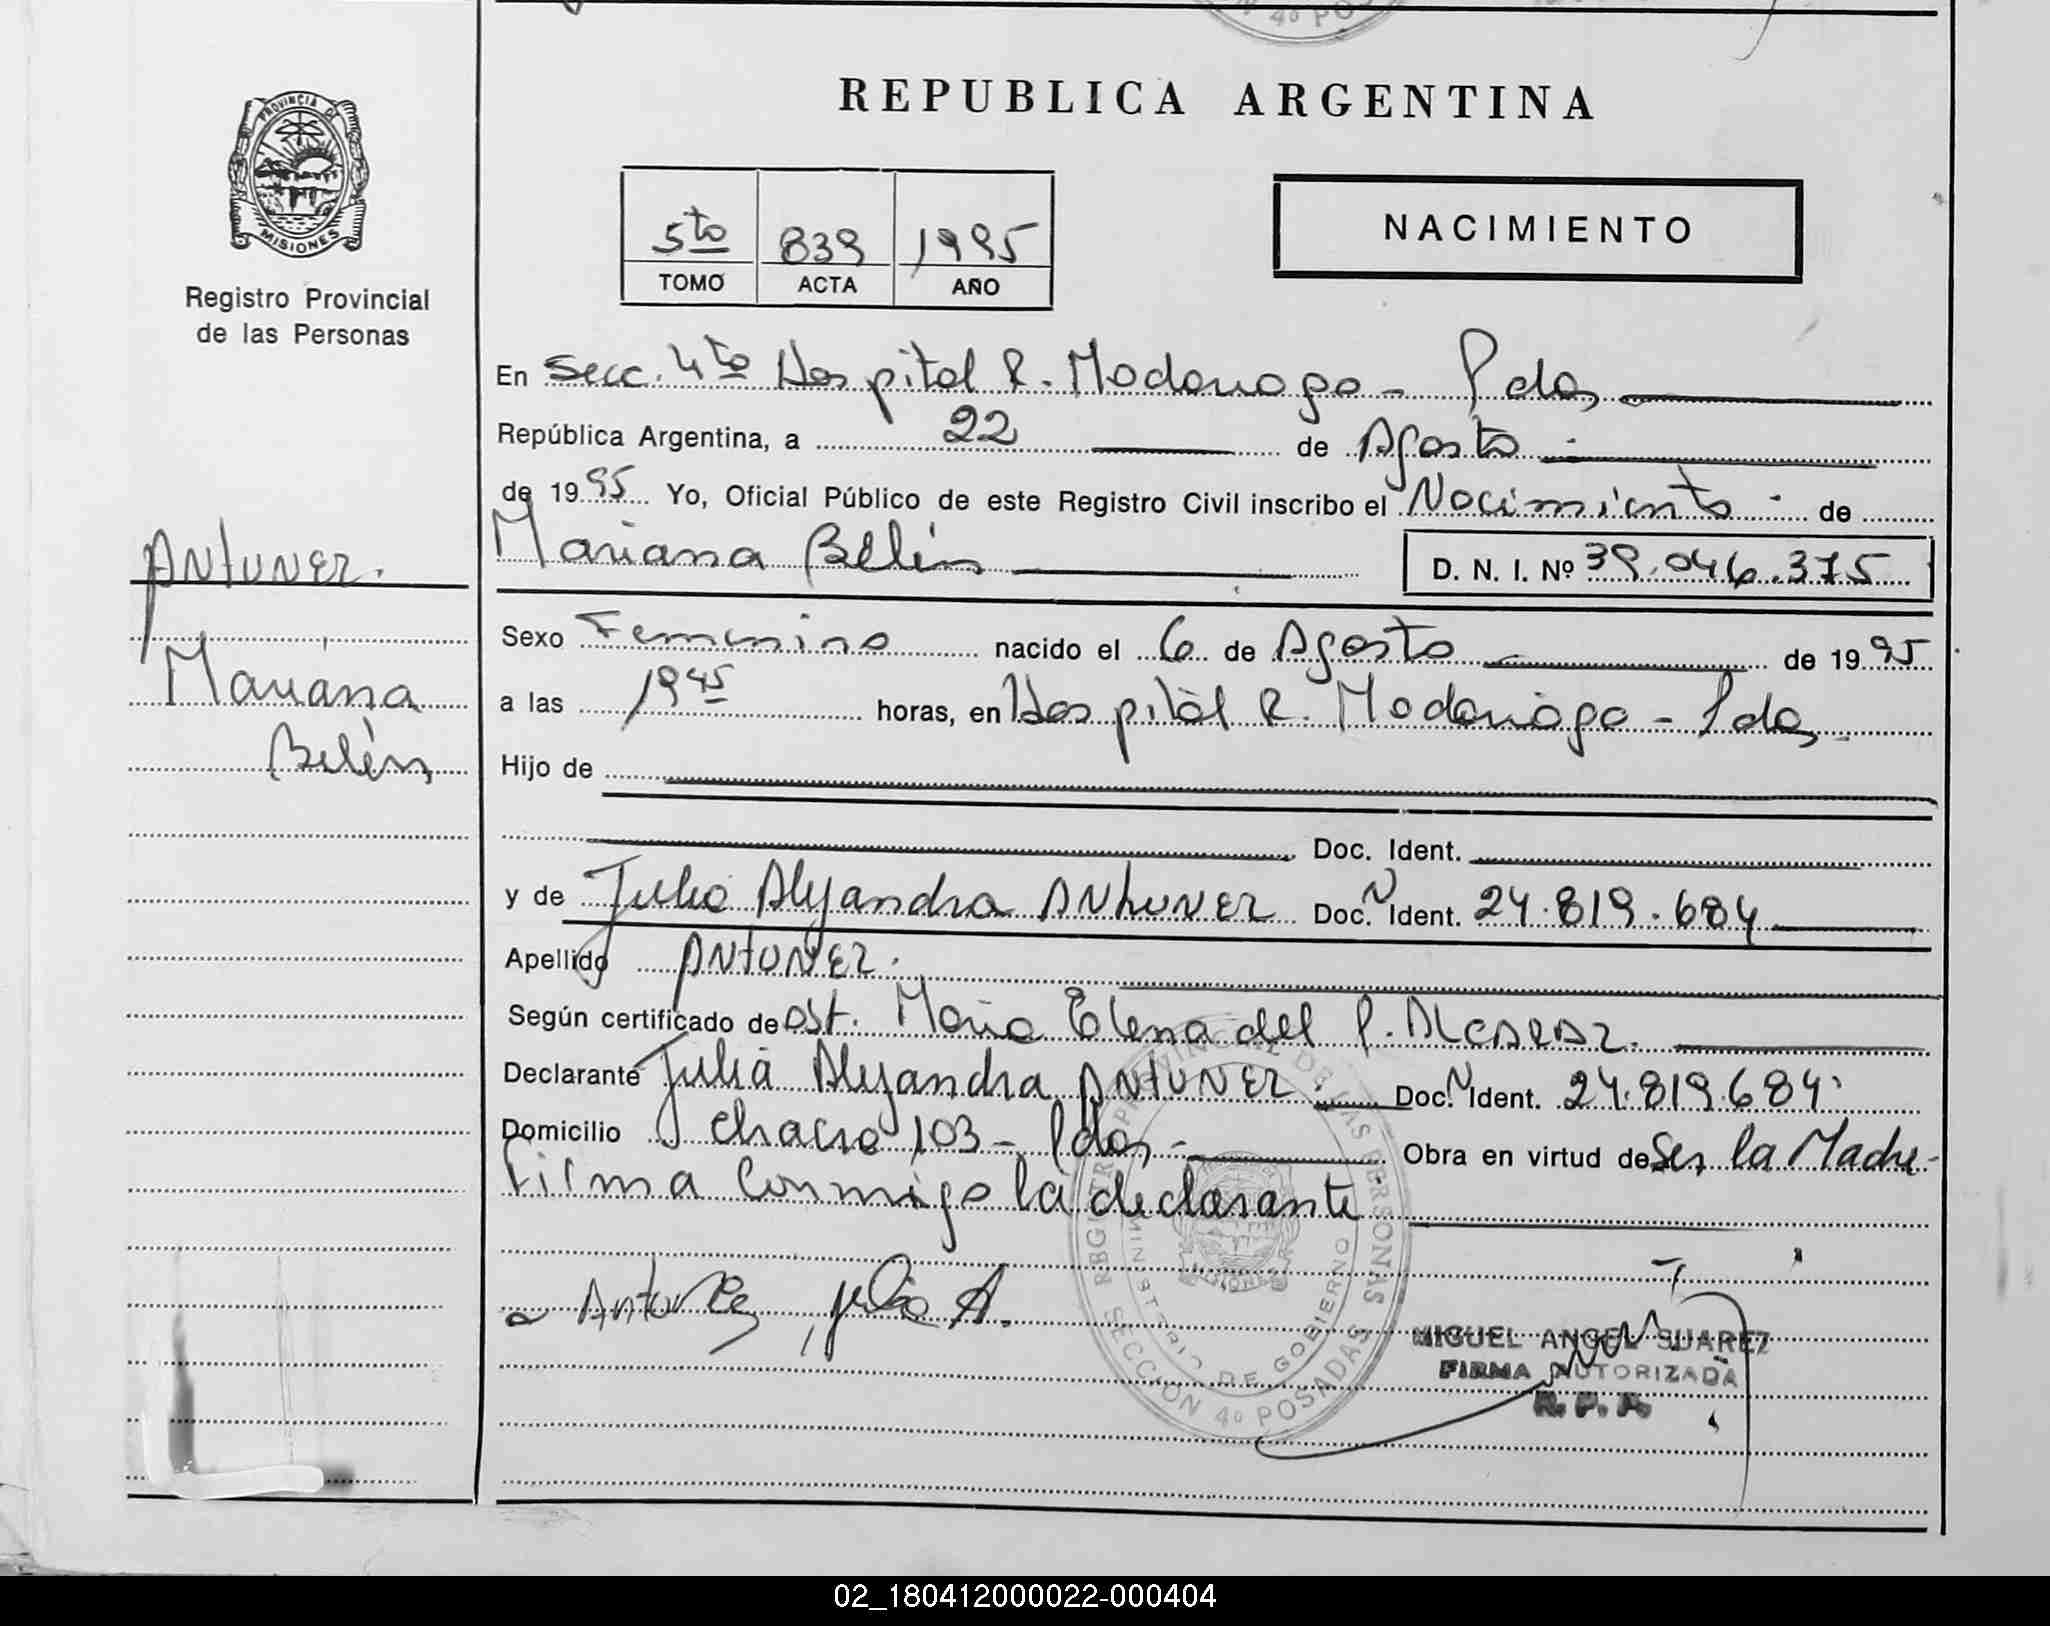 N 4º POS
REPUBLICA ARGENTINA
PROVINCIA DE
MISIONES
Registro Provincial
de las Personas
5to 839 1995
TOMO ACTA AÑO
NACIMIENTO
En Secc. 4to Hospital R. Madariaga - Pdas
República Argentina, a 22 de Agosto
de 1995 Yo, Oficial Público de este Registro Civil inscribo el Nacimiento de
Mariana Belén D. N. I. Nº 39.046.375
ANTUNEZ.
Mariana
Belén
Sexo Femenino nacido el 6 de Agosto de 1995
a las 1945 horas, en Hospital R. Madariaga - Pdas
Hijo de
Doc. Ident.
y de Julia Alejandra ANTUNEZ Doc. N Ident. 24.819.684
Apellido ANTUNEZ.
Según certificado de Ost. Maria Elena del P. ALCARAZ.
Declarante Julia Alejandra ANTUNEZ. Doc. N Ident. 24.819.684
Domicilio chacra 103 - Pdas - Obra en virtud de Ser la Madre -
Firma Conmigo la declarante
Antunez, Julia A.
REGISTRO PROVINCIAL DE LAS PERSONAS
MINISTERIO DE GOBIERNO
MISIONES
SECCIÓN 4º POSADAS
MIGUEL ANGEL SUAREZ
FIRMA AUTORIZADA
R. P. P.
02_180412000022-000404